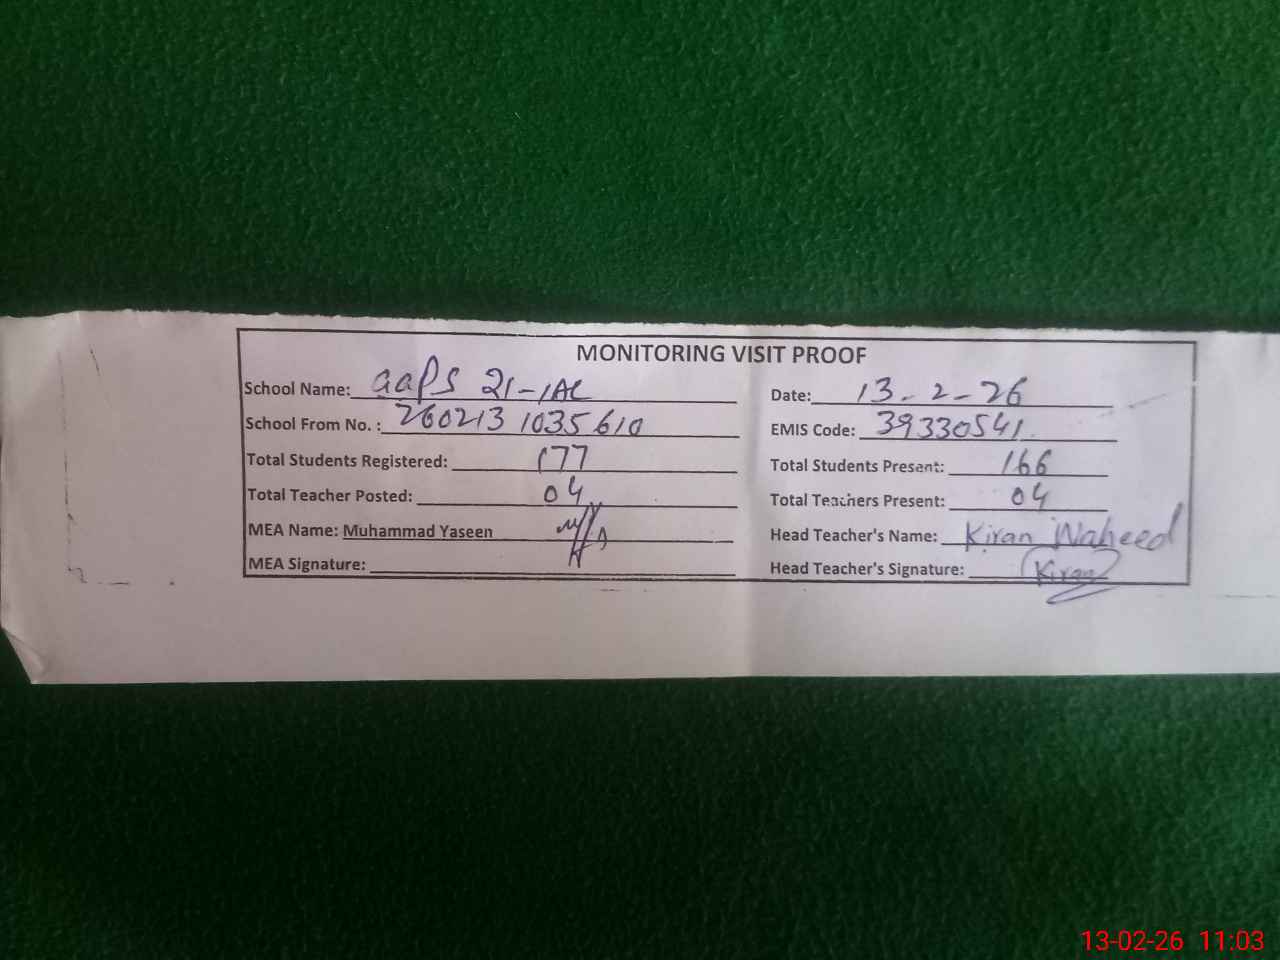 MONITORING VISIT PROOF
School Name: GGPS 21-1AL Date: 13-2-26
School From No. : 260213 1035610 EMIS Code: 39330541
Total Students Registered: 177 Total Students Present: 166
Total Teacher Posted: 04 Total Teachers Present: 04
MEA Name: Muhammad Yaseen Head Teacher's Name: Kiran Waheed
MEA Signature: Head Teacher's Signature: Kiran
13-02-26 11:03